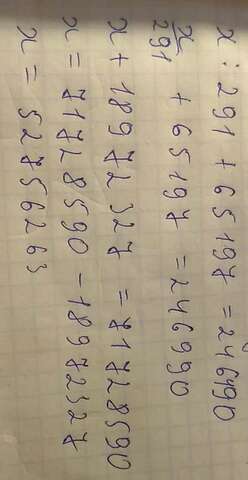 x : 291 + 65197 = 246490
x/291 + 65197 = 246490
x + 18972327 = 71728590
x = 71728590 - 18972327
x = 52756263